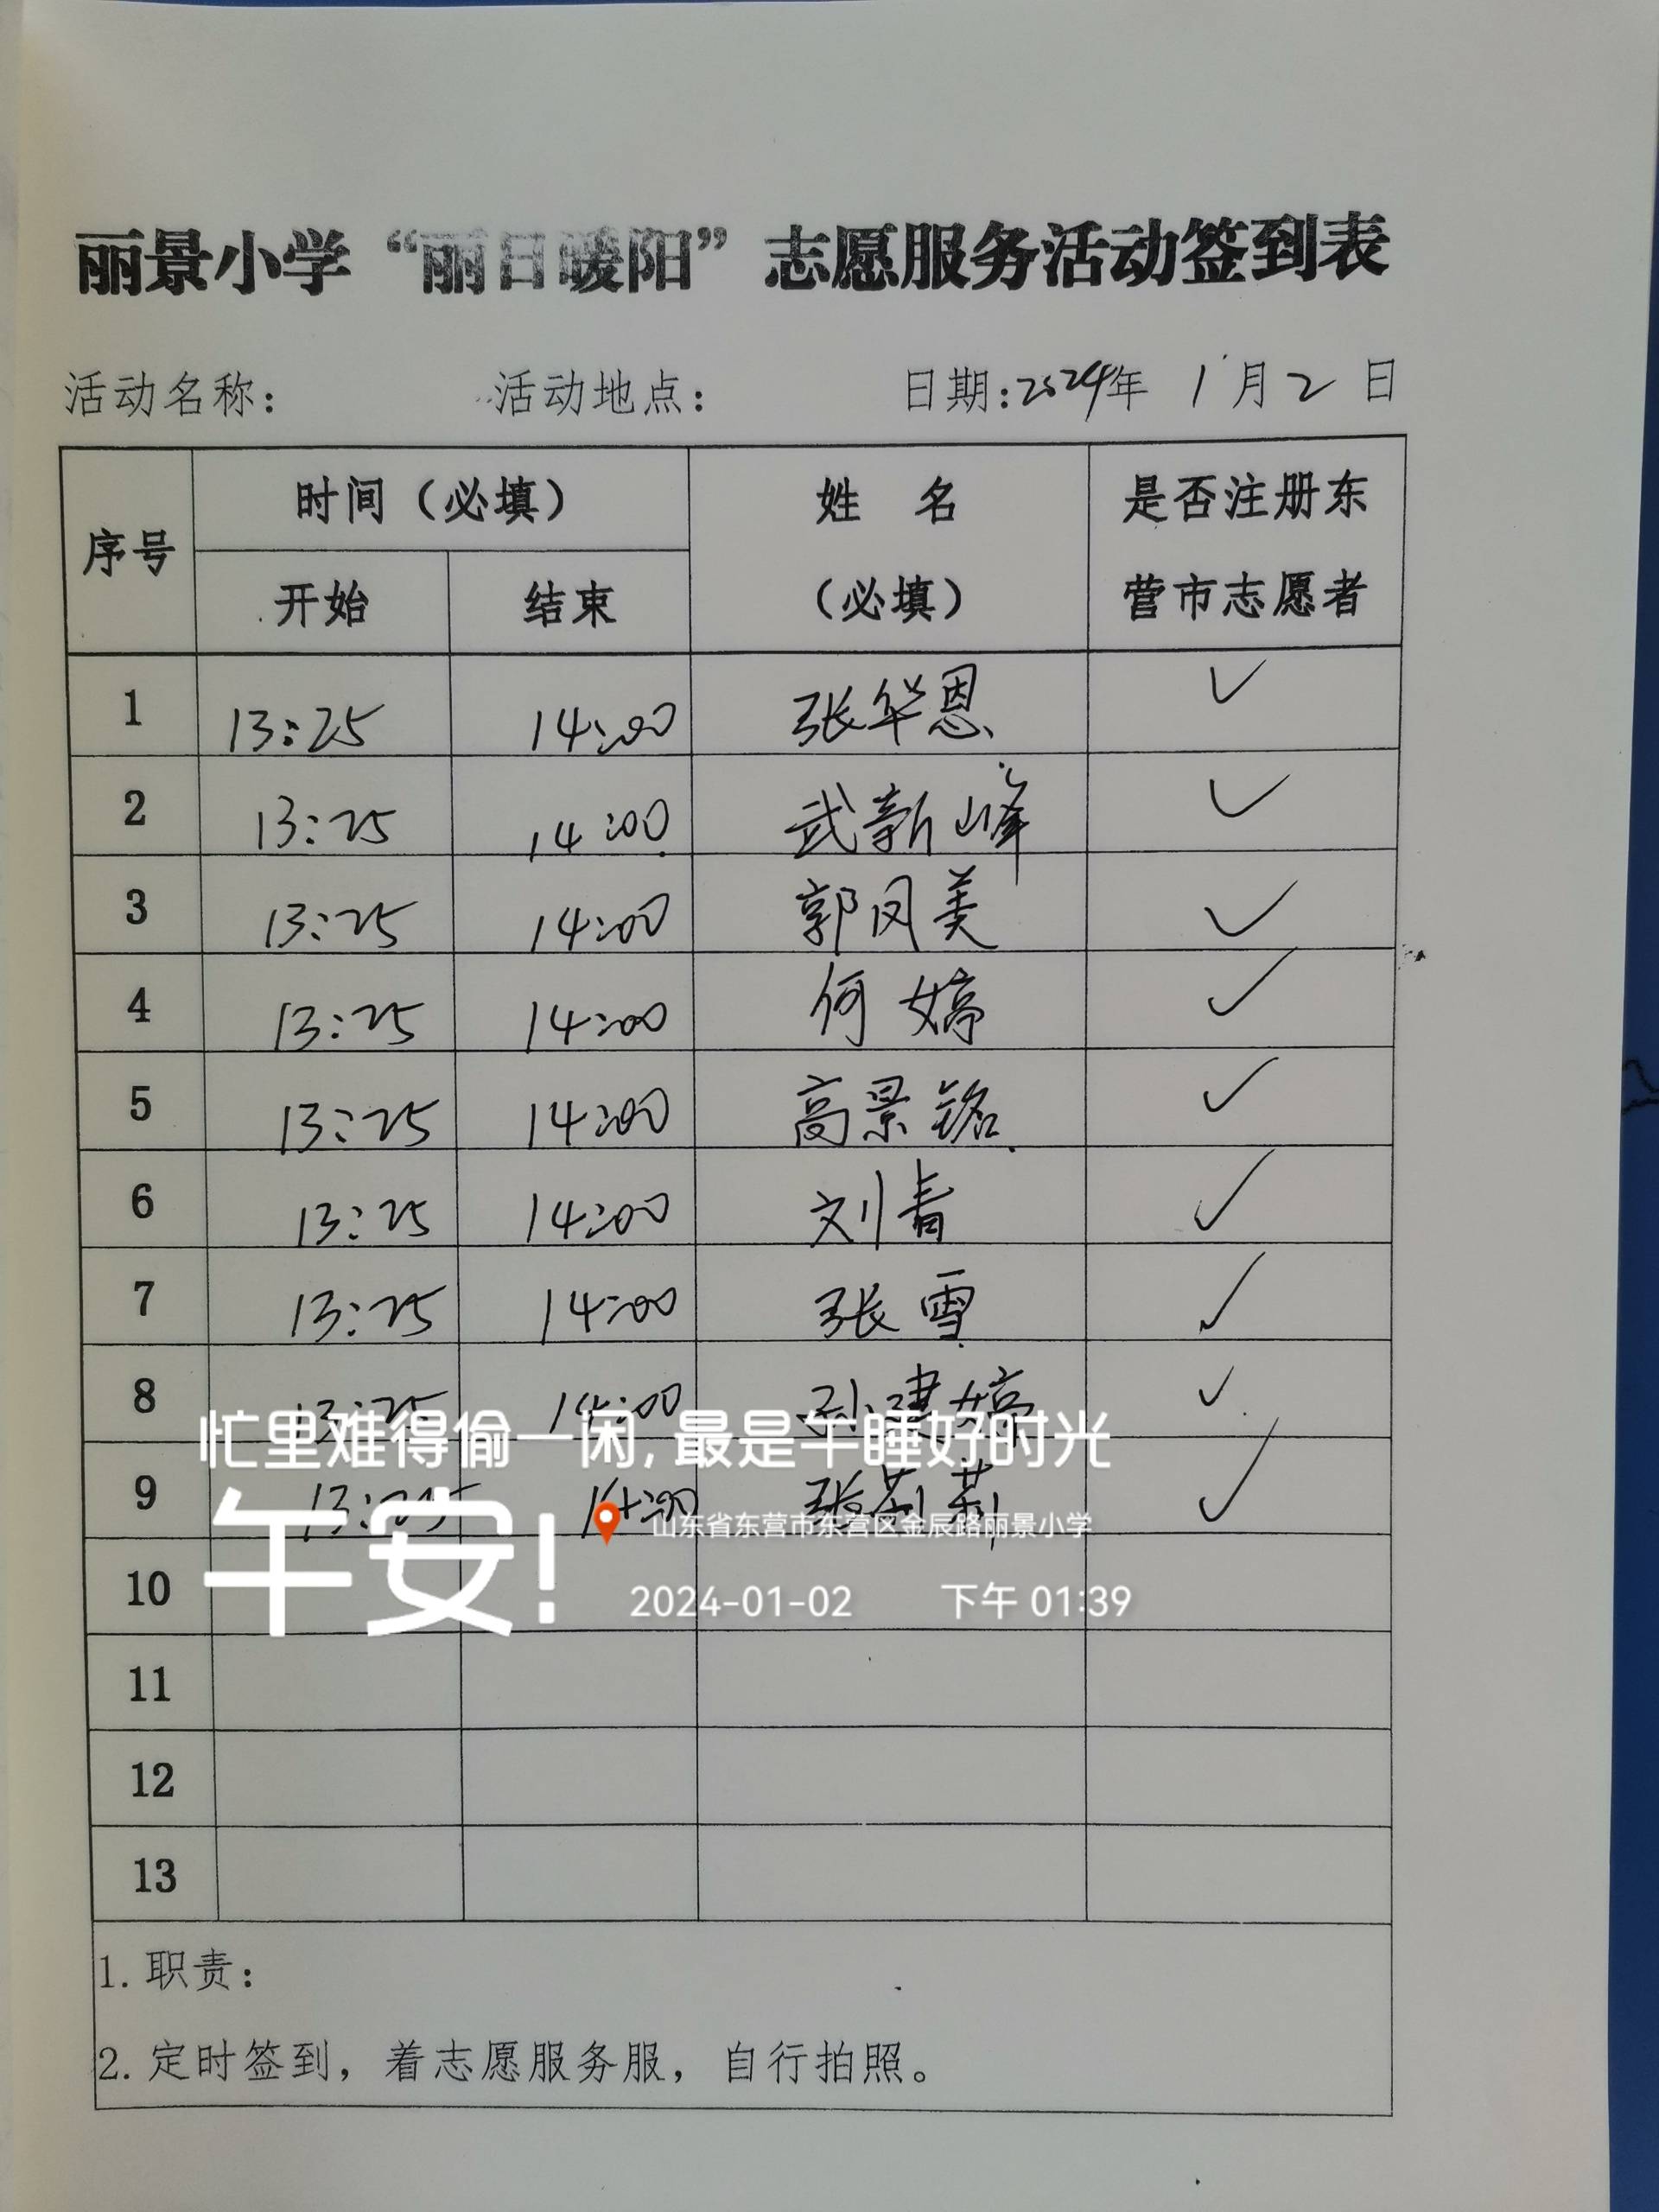 丽景小学“丽日暖阳”志愿服务活动签到表
活动名称： 活动地点： 日期:2024年 1月2日
序号 时间（必填） 姓 名（必填） 是否注册东营市志愿者
开始 结束
1 13:25 14:00 张华恩 ✓
2 13:25 14:00 武新峰 ✓
3 13:25 14:00 郭凤美 ✓
4 13:25 14:00 何婷 ✓
5 13:25 14:00 高景铭 ✓
6 13:25 14:00 刘青 ✓
7 13:25 14:00 张雪 ✓
8 13:25 14:00 孙建婷 ✓
忙里难得偷一闲,最是午睡好时光
9 13:25 14:00 张莉莉 ✓
午安!
山东省东营市东营区金辰路丽景小学
2024-01-02 下午 01:39
10
11
12
13
1.职责：
2.定时签到，着志愿服务服，自行拍照。